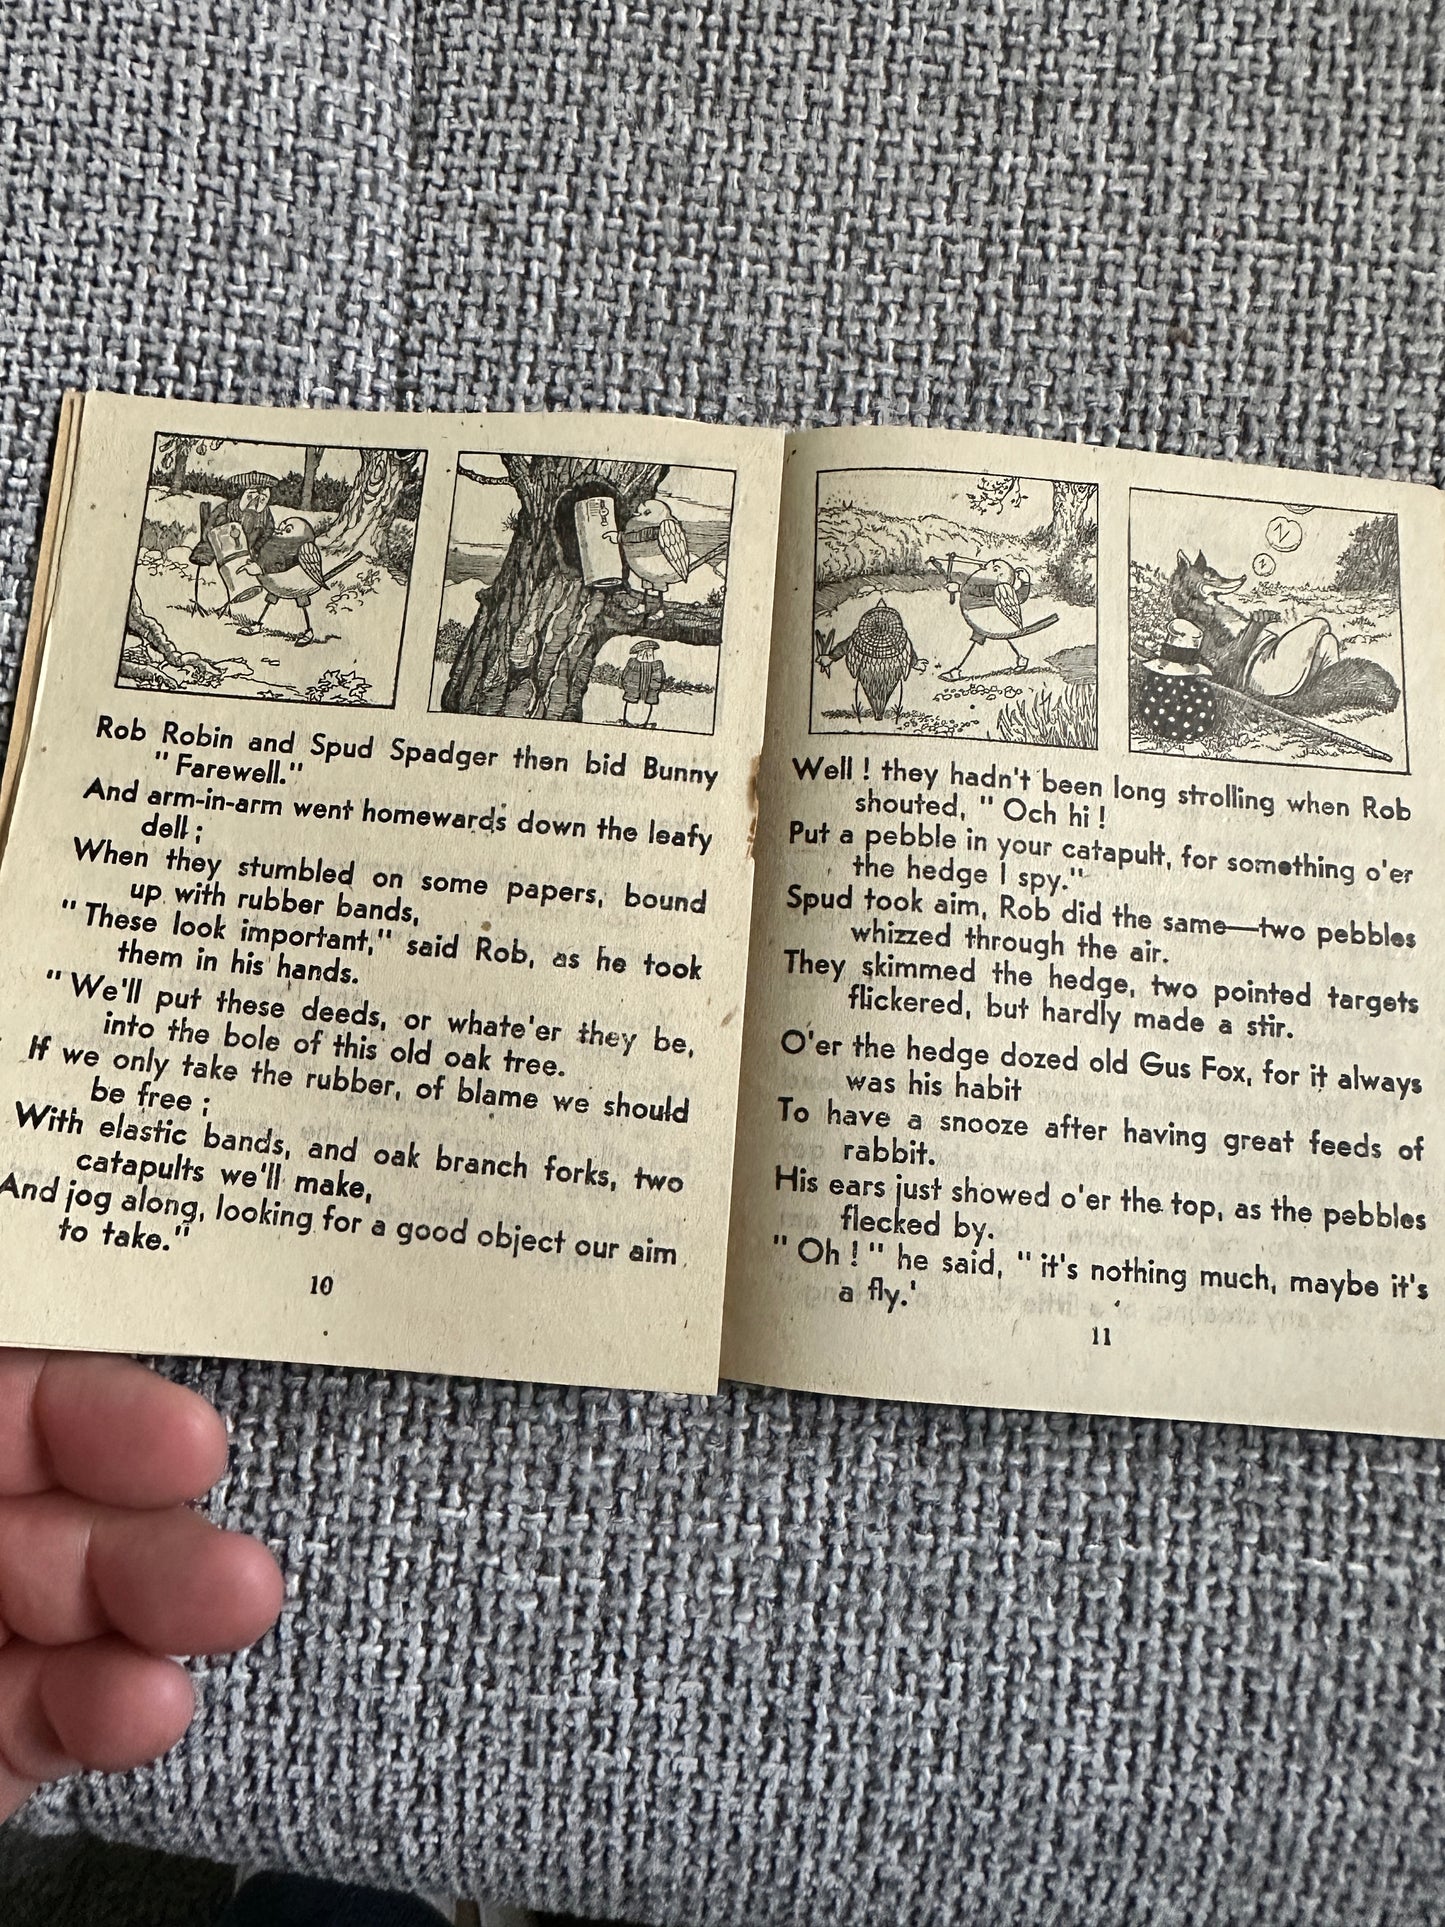 Rob Robin and Spud Spadger then bid Bunny
"Farewell."
And arm-in-arm went homewards down the leafy
dell;
When they stumbled on some papers, bound
up with rubber bands,
"These look important," said Rob, as he took
them in his hands.
"We'll put these deeds, or whate'er they be,
into the bole of this old oak tree.
If we only take the rubber, of blame we should
be free;
With elastic bands, and oak branch forks, two
catapults we'll make,
And jog along, looking for a good object our aim
to take."
10
Z
z
Well! they hadn't been long strolling when Rob
shouted, "Och hi!
Put a pebble in your catapult, for something o'er
the hedge I spy."
Spud took aim, Rob did the same—two pebbles
whizzed through the air.
They skimmed the hedge, two pointed targets
flickered, but hardly made a stir.
O'er the hedge dozed old Gus Fox, for it always
was his habit
To have a snooze after having great feeds of
rabbit.
His ears just showed o'er the top, as the pebbles
flecked by.
"Oh!" he said, "it's nothing much, maybe it's
a fly.'
11